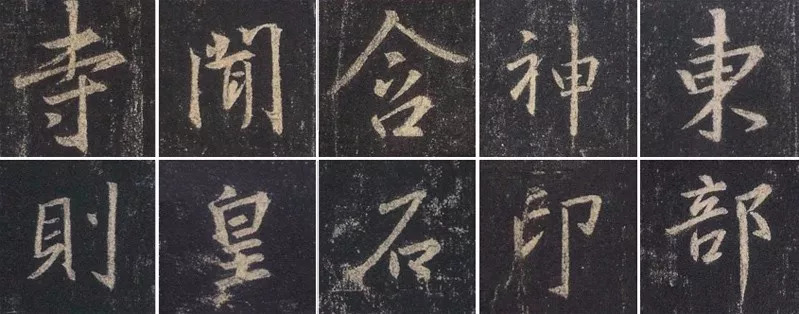 寺 含 神 東
則 皇 石 印 部